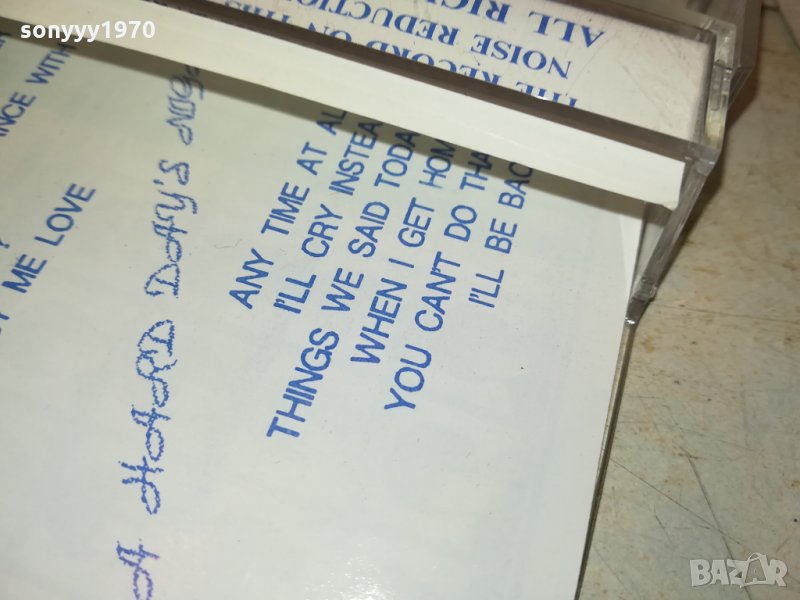 sonyyy1970
THE RECORD ON THIS
NOISE REDUCTION
ALL RIG
ANCE WITH
ME LOVE
A HARD DAY'S NIG
ANY TIME AT AL
I'LL CRY INSTEA
THINGS WE SAID TODA
WHEN I GET HOM
YOU CAN'T DO THA
I'LL BE BAC
BAZAR